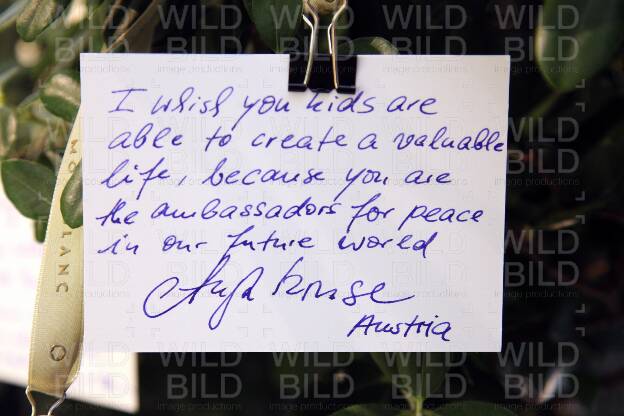 I whish you kids are
able to create a valuable
life, because you are
the ambassadors for peace
in our future world
Austria
MO
LANC
WILD
BILD
image productions